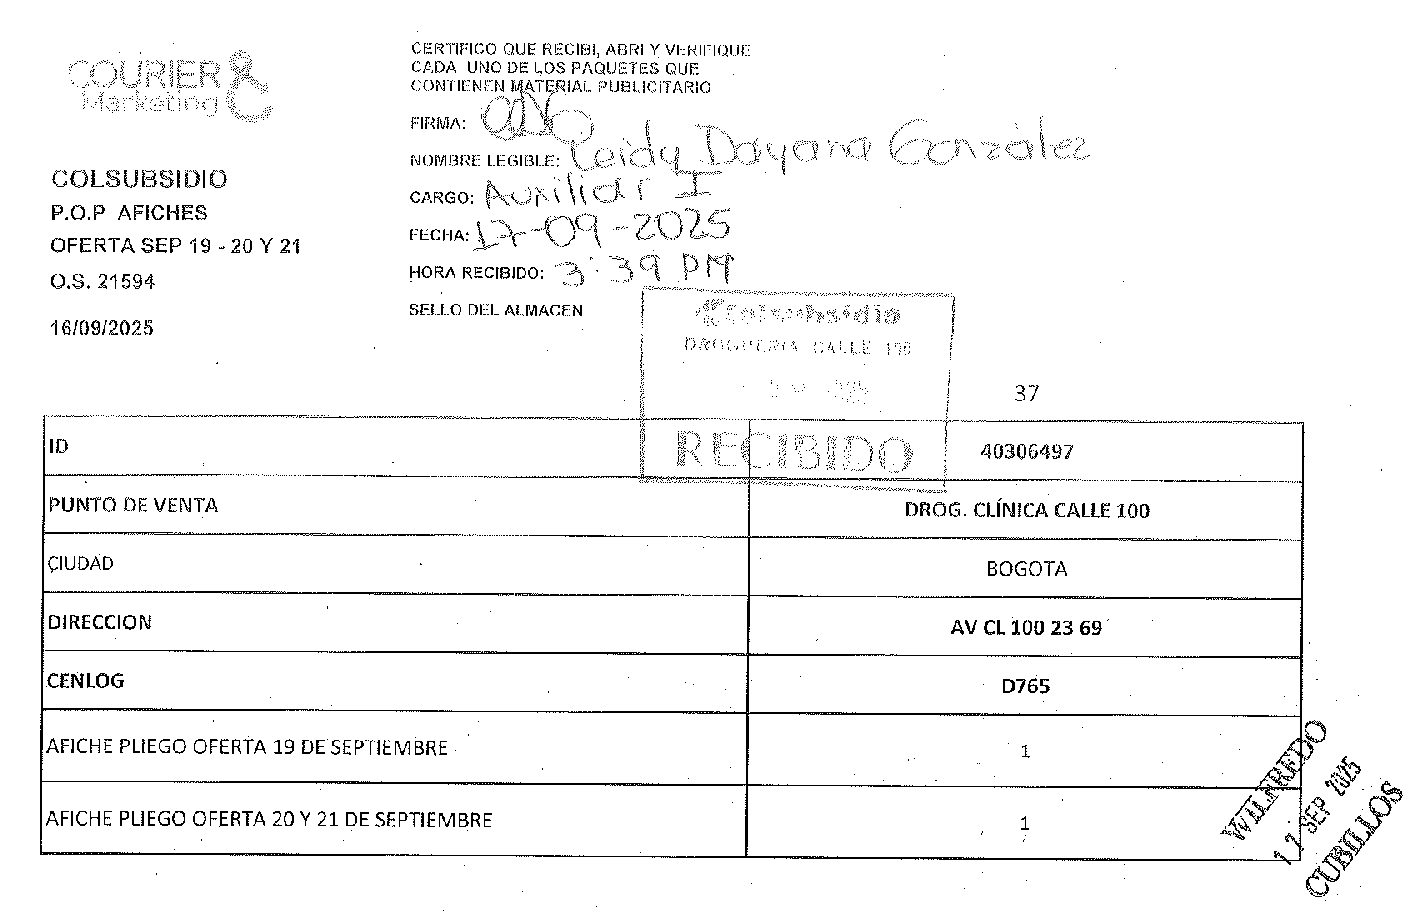 COURIER
Marketing
COLSUBSIDIO
P.O.P AFICHES
OFERTA SEP 19 - 20 Y 21
O.S. 21594
16/09/2025
CERTIFICO QUE RECIBI, ABRI Y VERIFIQUE
CADA UNO DE LOS PAQUETES QUE
CONTIENEN MATERIAL PUBLICITARIO
FIRMA:
NOMBRE LEGIBLE: Leidy Dayana González
CARGO: Auxiliar I
FECHA: 17-09-2025
HORA RECIBIDO: 3:39 PM
SELLO DEL ALMACEN
Colsubsidio
DROGUERIA CALLE 100
RECIBIDO
37
ID 40306497
PUNTO DE VENTA DROG. CLÍNICA CALLE 100
CIUDAD BOGOTA
DIRECCION AV CL 100 23 69
CENLOG D765
AFICHE PLIEGO OFERTA 19 DE SEPTIEMBRE 1
AFICHE PLIEGO OFERTA 20 Y 21 DE SEPTIEMBRE 1
WILFREDO
17 SEP 2025
CUBILLOS